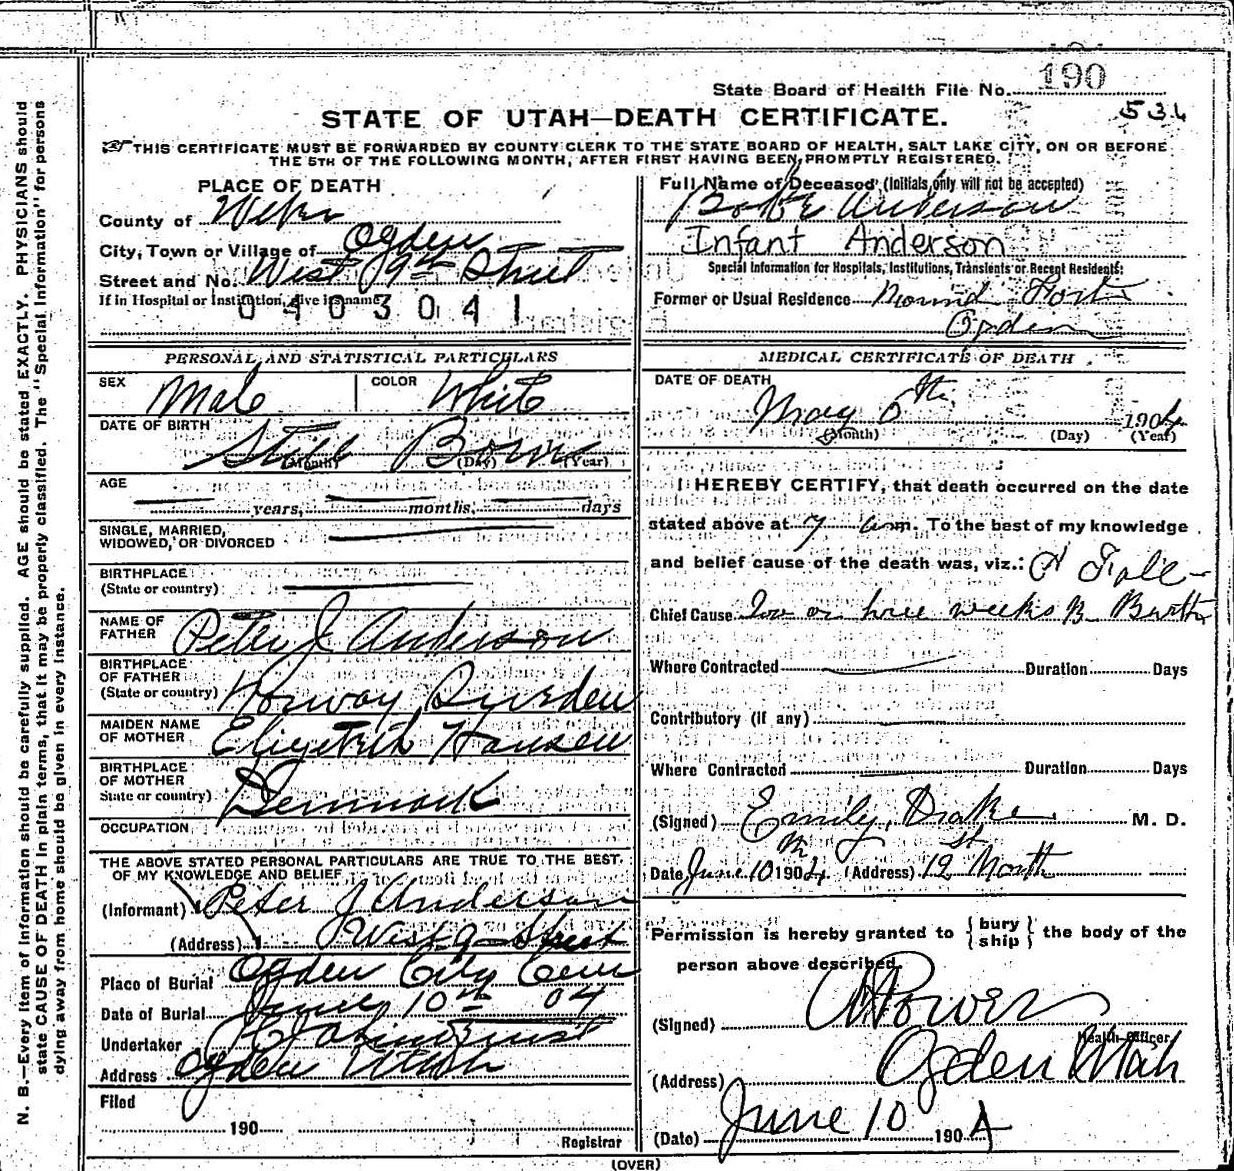 State Board of Health File No. 190
531
STATE OF UTAH—DEATH CERTIFICATE.
THIS CERTIFICATE MUST BE FORWARDED BY COUNTY CLERK TO THE STATE BOARD OF HEALTH, SALT LAKE CITY, ON OR BEFORE
THE 5TH OF THE FOLLOWING MONTH, AFTER FIRST HAVING BEEN PROMPTLY REGISTERED.
PLACE OF DEATH
County of Weber
City, Town or Village of Ogden
Street and No. West 19th Street
If in Hospital or Institution, give its name
0403041
PERSONAL AND STATISTICAL PARTICULARS
SEX Male COLOR White
DATE OF BIRTH Still Born
(Month) (Day) (Year)
AGE
years, months, days
SINGLE, MARRIED,
WIDOWED, OR DIVORCED
BIRTHPLACE
(State or country)
NAME OF
FATHER Peter J Anderson
BIRTHPLACE
OF FATHER
(State or country) Norway Sweden
MAIDEN NAME
OF MOTHER Elizebeth Hansen
BIRTHPLACE
OF MOTHER
State or country) Denmark
OCCUPATION
THE ABOVE STATED PERSONAL PARTICULARS ARE TRUE TO THE BEST
OF MY KNOWLEDGE AND BELIEF
(Informant) Peter J Anderson
(Address) West 9 Street
Place of Burial Ogden City Cem
Date of Burial June 10th 04
Undertaker Lindquist
Address Ogden Utah
Filed
190
Registrar
Full Name of Deceased (Initials only will not be accepted)
Anderson
Infant Anderson
Special Information for Hospitals, Institutions, Transients or Recent Residents:
Former or Usual Residence Mound Fort
Ogden
MEDICAL CERTIFICATE OF DEATH
DATE OF DEATH
May th 1904
(Month) (Day) (Year)
I HEREBY CERTIFY, that death occurred on the date
stated above at 7 am. To the best of my knowledge
and belief cause of the death was, viz.:
Chief Cause or weeks B Birth
Where Contracted Duration Days
Contributory (if any)
Where Contracted Duration Days
(Signed) Emily Drake M. D.
Date June 10th 1904 (Address) 12 St North
Permission is hereby granted to { bury ship } the body of the
person above described
(Signed) Power
Health Officer
(Address) Ogden Utah
(Date) June 10 1904
(OVER)
N. B.—Every item of information should be carefully supplied. AGE should be stated EXACTLY. PHYSICIANS should
state CAUSE OF DEATH in plain terms, that it may be properly classified. The "Special Information" for persons
dying away from home should be given in every instance.